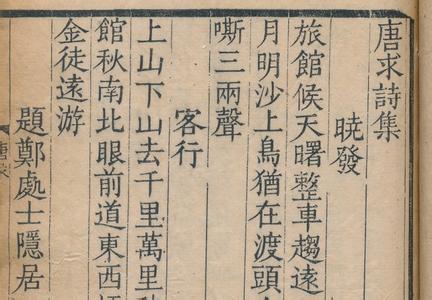 唐求詩集
曉發
旅館候天曙整車趨遠
月明沙上鳥猶在渡頭
嘶三兩聲
客行
上山下山去千里萬里
館秋南北眼前道東西
金徒遠游
題鄭處士隱居